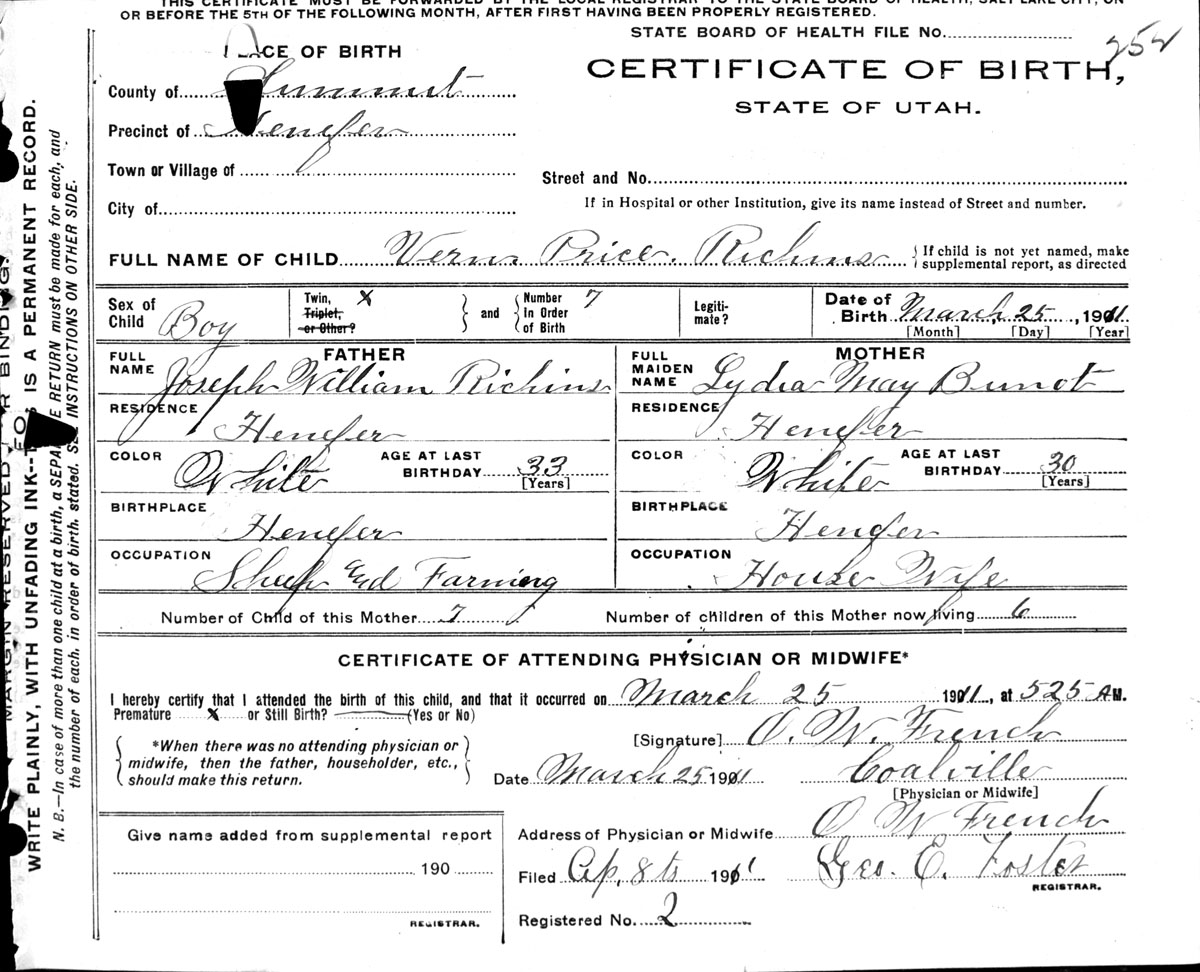 THIS CERTIFICATE MUST BE FORWARDED BY THE LOCAL REGISTRAR TO THE STATE BOARD OF HEALTH, SALT LAKE CITY, ON
OR BEFORE THE 5TH OF THE FOLLOWING MONTH, AFTER FIRST HAVING BEEN PROPERLY REGISTERED.
STATE BOARD OF HEALTH FILE No. 252
PLACE OF BIRTH
CERTIFICATE OF BIRTH,
STATE OF UTAH.
County of Summit
Precinct of Henefer
Town or Village of
Street and No.
City of
If in Hospital or other Institution, give its name instead of Street and number.
FULL NAME OF CHILD Vern Price Richins { If child is not yet named, make
supplemental report, as directed
Sex of Child Boy
Twin, X
Triplet,
or Other?
and
Number 7
In Order
of Birth
Legiti-
mate?
Date of
Birth March 25, 1911
[Month] [Day] [Year]
FATHER
FULL NAME Joseph William Richins
RESIDENCE Henefer
COLOR White AGE AT LAST BIRTHDAY 33 [Years]
BIRTHPLACE Henefer
OCCUPATION Sheep and Farming
MOTHER
FULL MAIDEN NAME Lydia May Bunot
RESIDENCE Henefer
COLOR White AGE AT LAST BIRTHDAY 30 [Years]
BIRTHPLACE Henefer
OCCUPATION House Wife
Number of Child of this Mother 7 Number of children of this Mother now living 6
CERTIFICATE OF ATTENDING PHYSICIAN OR MIDWIFE*
I hereby certify that I attended the birth of this child, and that it occurred on March 25 1911, at 525 A.M.
Premature X or Still Birth? (Yes or No)
[Signature] O. W. French
*When there was no attending physician or
midwife, then the father, householder, etc.,
should make this return.
Date March 25 1911 Coalville
[Physician or Midwife]
Address of Physician or Midwife O W French
Filed Ap, 8th 1911 Geo. E. Foster
REGISTRAR.
Registered No. 2
Give name added from supplemental report
190
REGISTRAR.
MARGIN RESERVED FOR BINDING.
WRITE PLAINLY, WITH UNFADING INK--THIS IS A PERMANENT RECORD.
N. B.—In case of more than one child at a birth, a SEPARATE RETURN must be made for each, and
the number of each, in order of birth, stated. SEE INSTRUCTIONS ON OTHER SIDE.